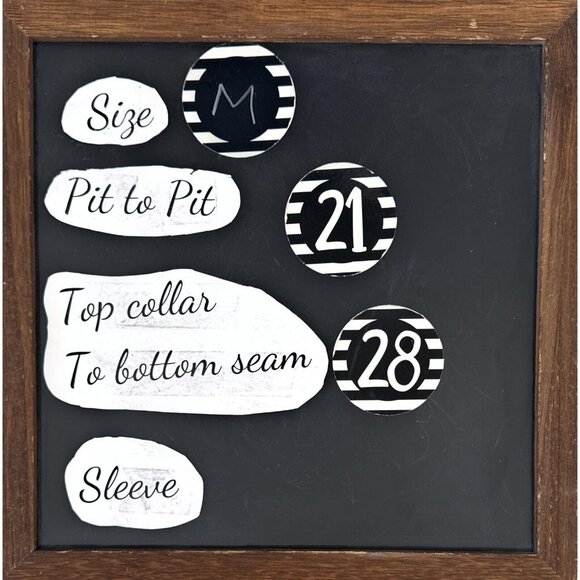 Size M
Pit to Pit 21
Top collar
To bottom seam 28
Sleeve